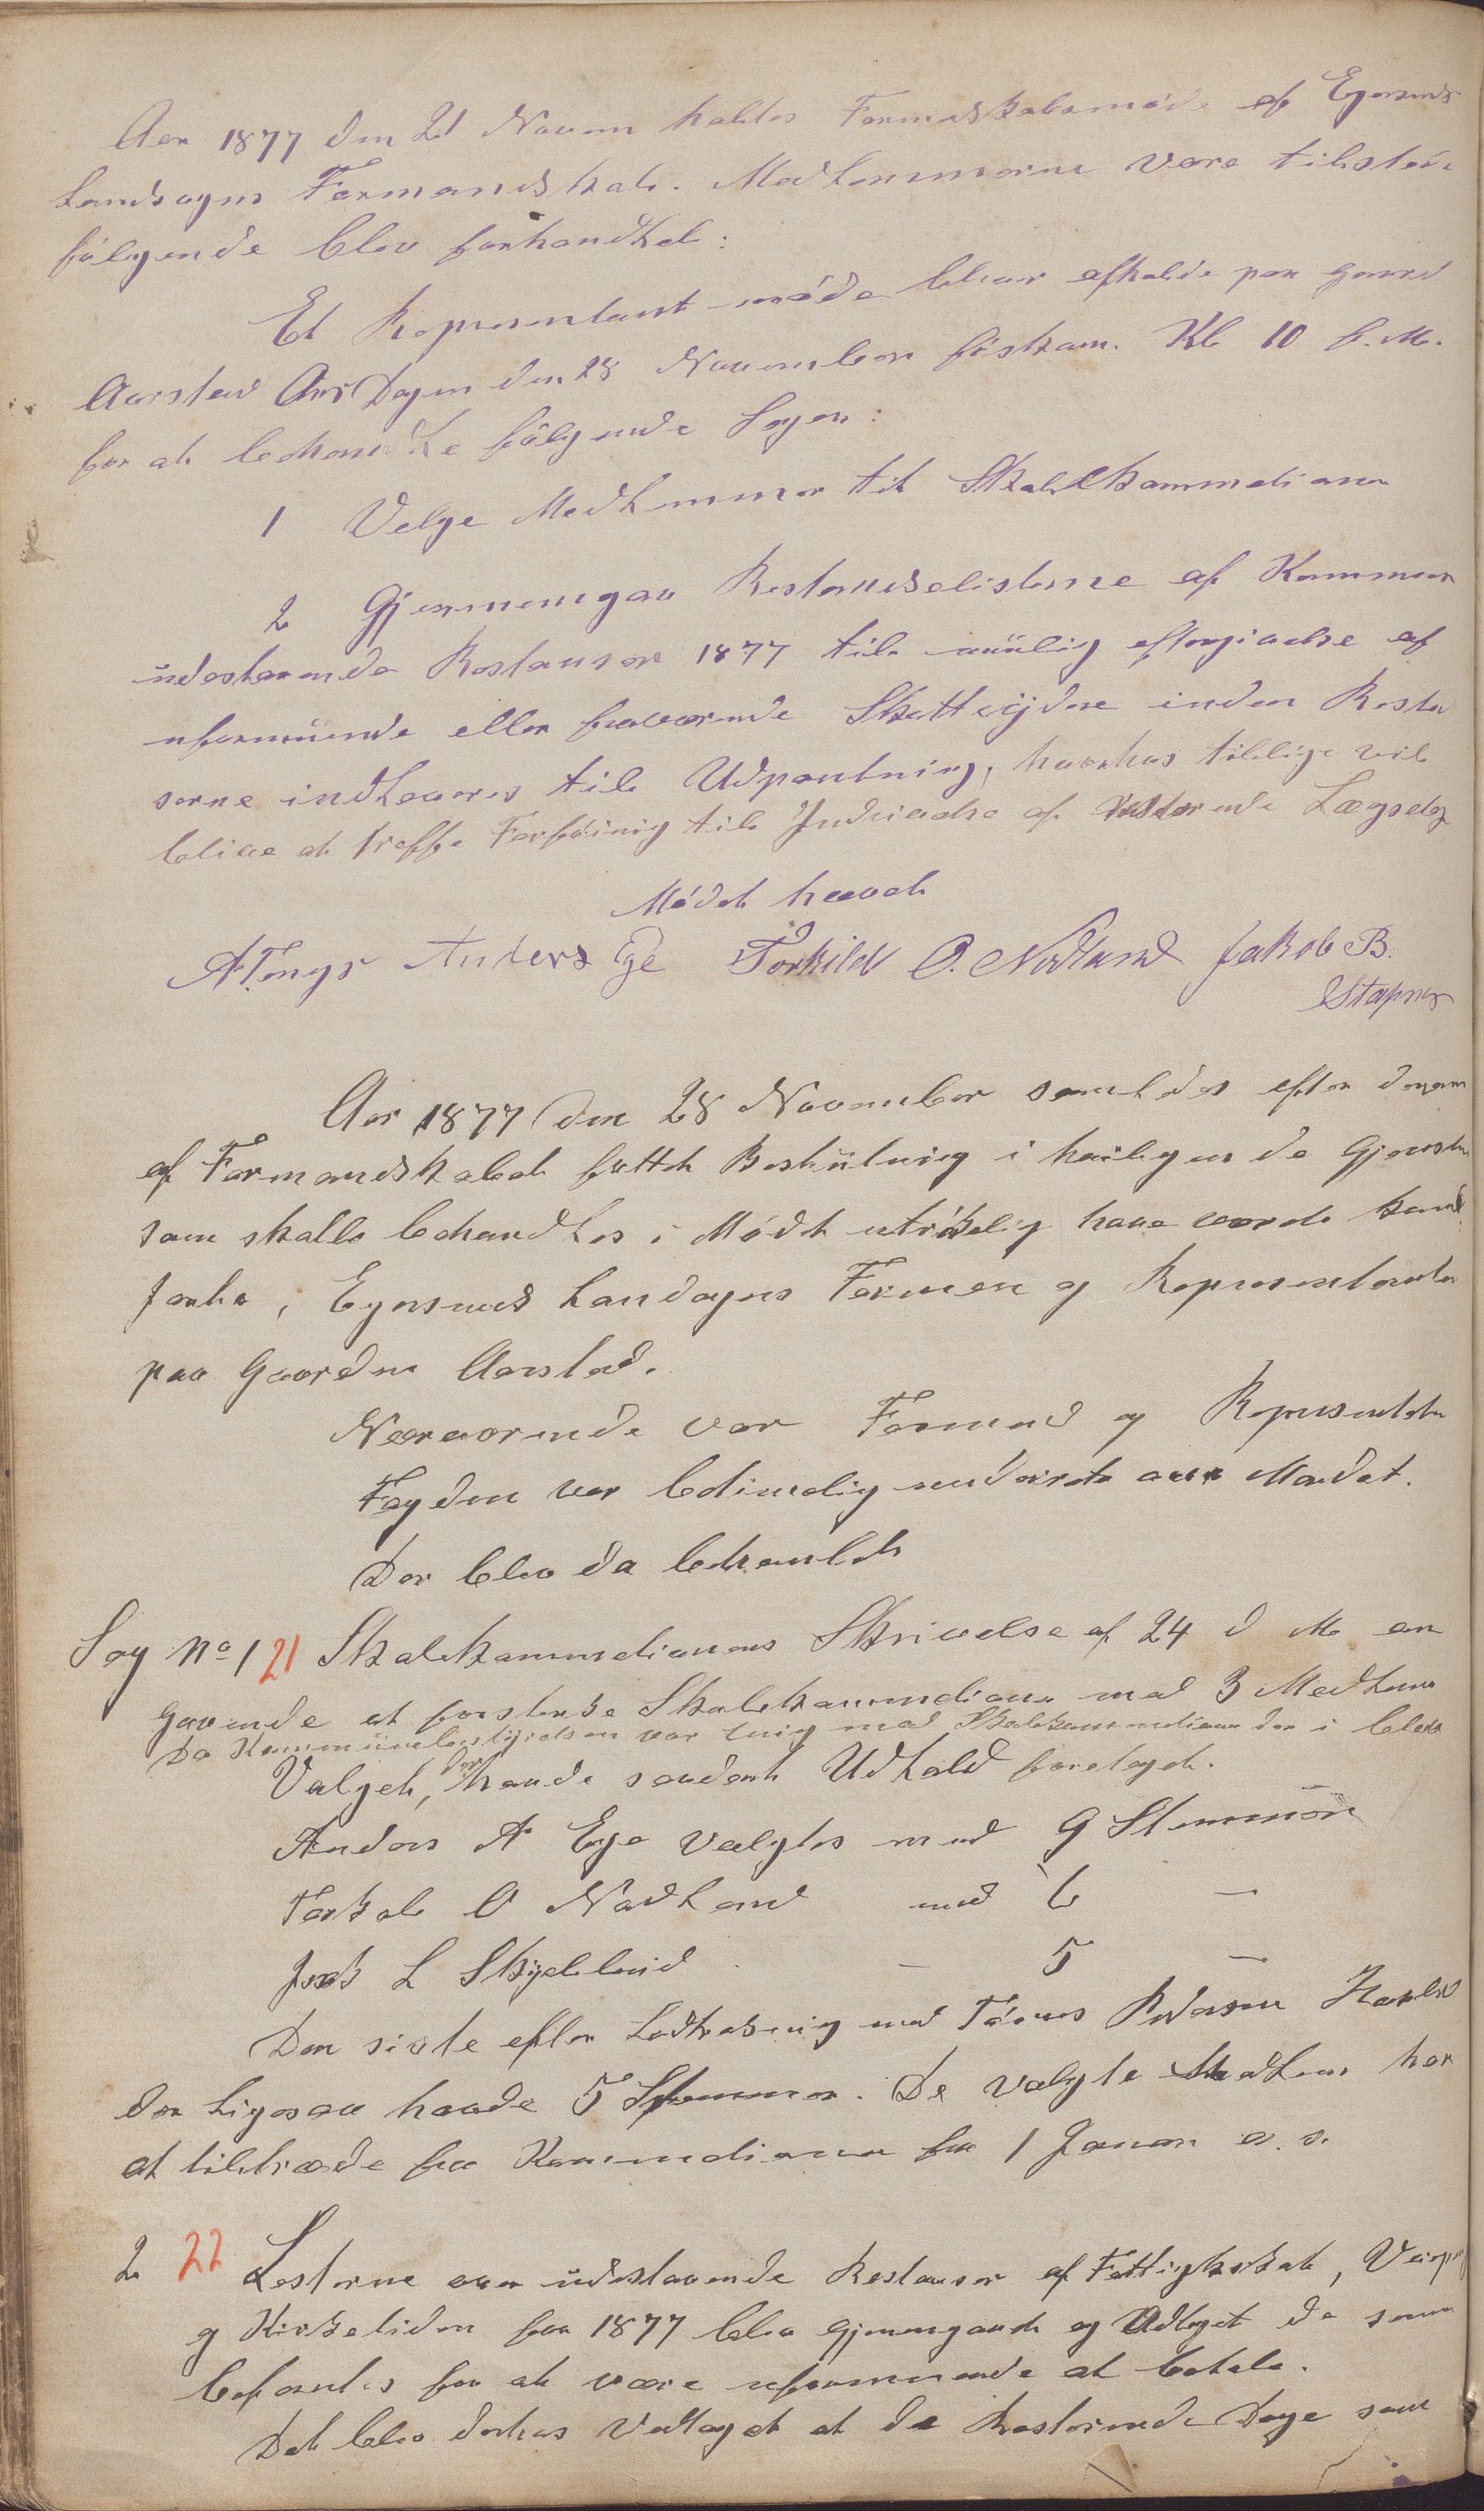 Aar 1877 den 21 Novem holdtes Formandskabsmøde af Egersunds
Landsogns Formandskab. Medlemmerne vare tilstede
følgende blev forhandlet:
Et Representantmøde bliver afholde paa Gaard
Aarstad Onsdagen den 28 November førstkom. Kl 10 f. M.
for at behandle følgende Sager:
1 Velge Medlemmer til Skolekommedionen
2 Gjennemgaa Restanselisterne af Kommun
udestaaende Restanser 1877 til muelig eftergivelse af
uformuende eller fraværende Skatteydere inden Restan
serne indleveres til Udpantning, hvorhos tillige vil
blive at treffe Forføining til Inddrivelse af resterende Lægsdg
Mødet hævet
A Tengs Anders Ege Torkild O. Nodland Jakob B.
Stapnes
Aar 1877 den 28 November samledes efter den
af Formandskabet fattet Beslutning i hvilgende Gjenst
som skulle behandles i Mødet utrikelig have været
, Egersund Landsogns Formen og Representanter
paa Gaarden Aarstad.
Nærværende var Formend og Representeter
Fogden var betimelig underrete om Mødet.
Der blev da behandlet
Sag No 1 21 Skolekommedionens Skrivelse af 24 d M an
gaaende at forsterke Skolekommedionen med 3 Medlem
Da Kommunebestyrelsen var enig med Skolekommedionen der i blev
Valget, der havde saadant Udfald foretaget.
Anders A Ege valgtes med 9 Stemmer
Torkel O Nodland med 6 —
Jonas L Skjelbreid — 5 —
Den siste efter Lodtrekning med Tønnes Pedersen
der ligesaa havde 5 Stemmer. De valgte Medlem har
at tiltræde fra Kommedionen fra 1 Januar n. a.
2 22 Listerne over udestaaende Restanser af Fattigskat, Veipen
og Kirketiden for 1877 blev gjennemgaaet og Udtaget de som
befantes for at være uformuende at betale.
Det blev derhos Vedtaget at de Resterende Dage som